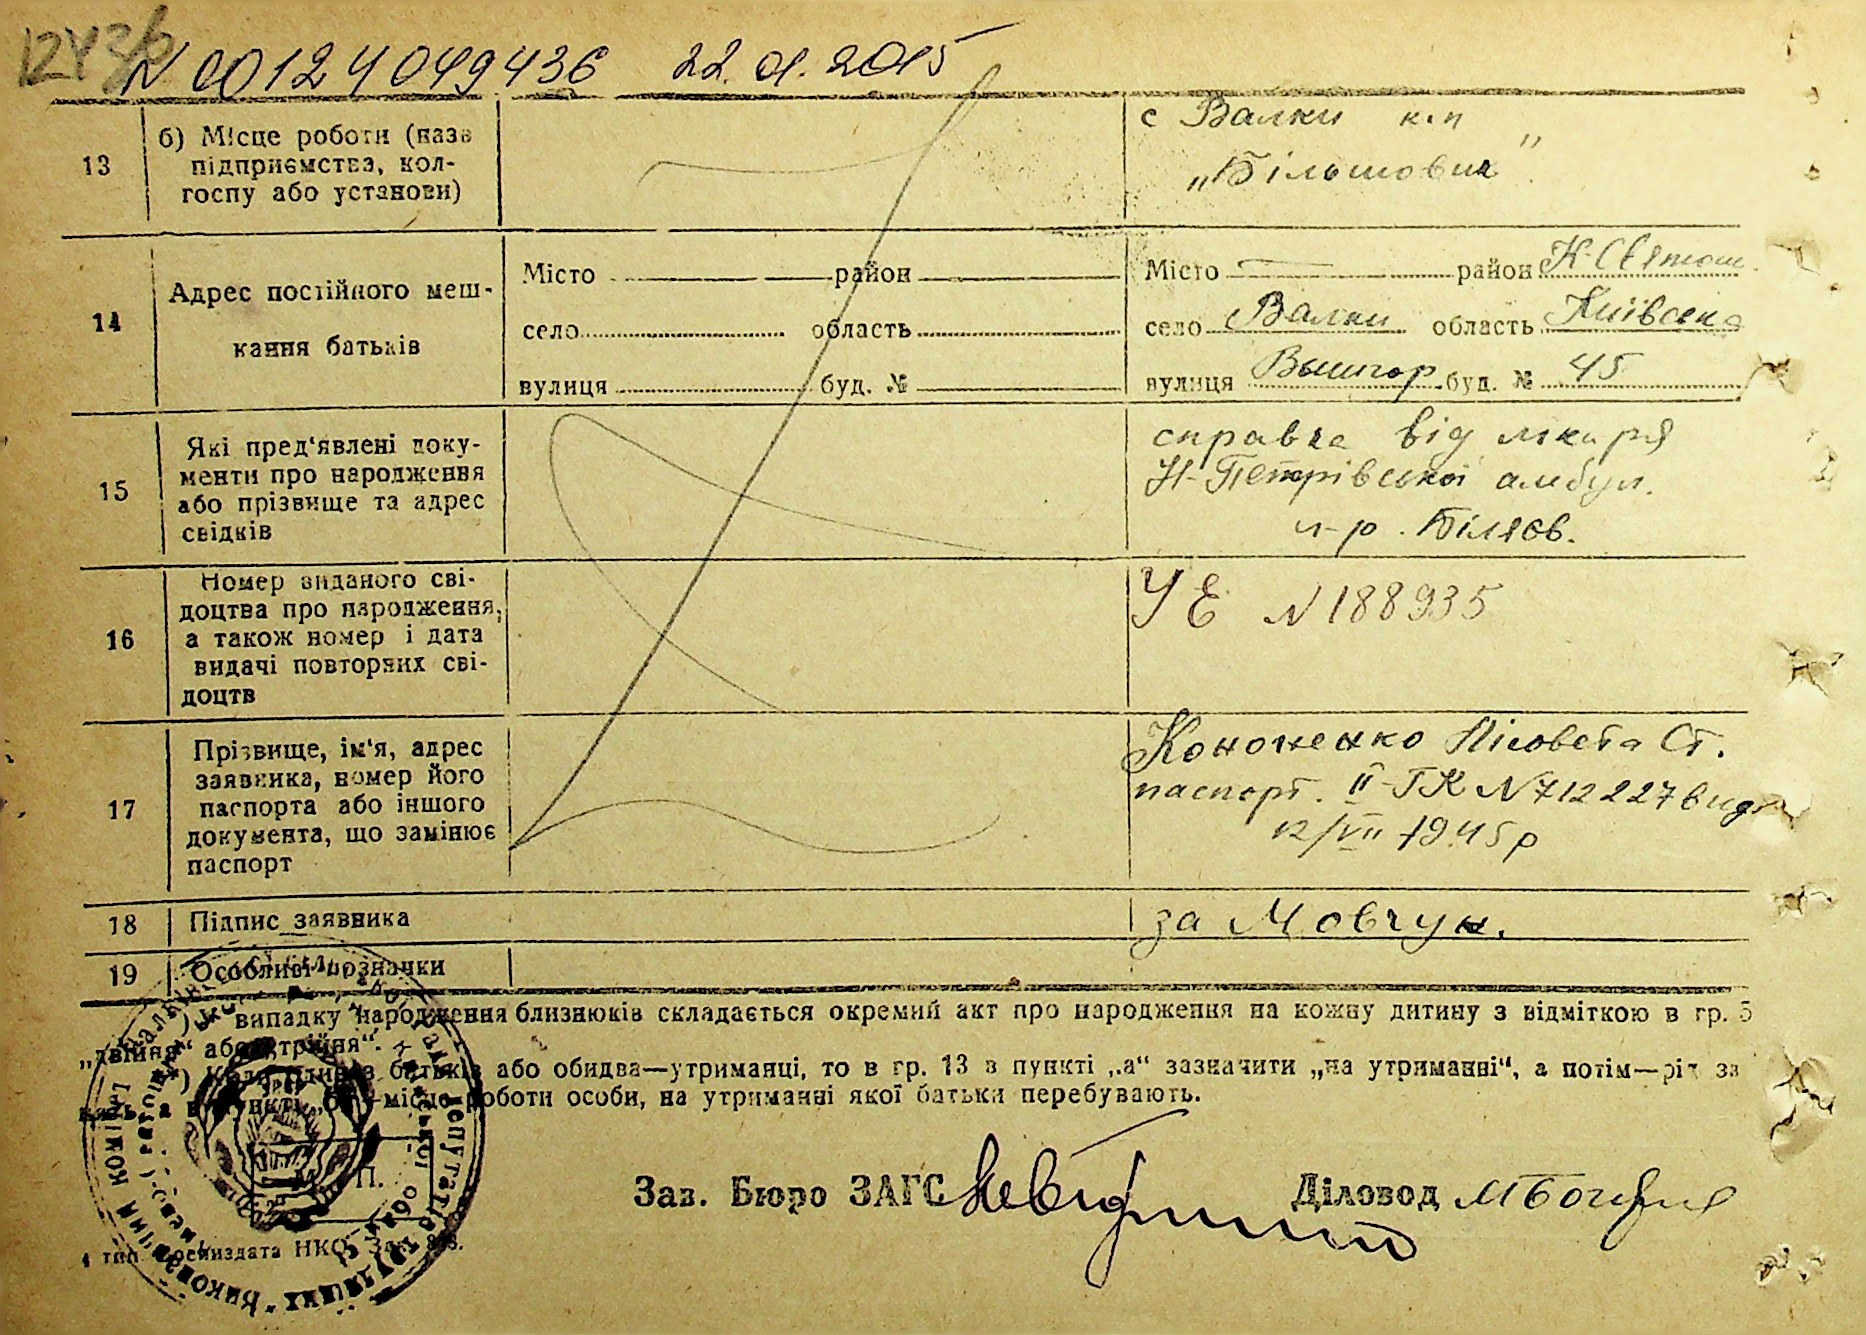 N 00124049436 22.01.2015
13
б) Місце роботи (назв
підприємства, кол-
госпу або установи)
с Валки к.п
„Більшовик"
14
Адрес постійного меш-
кання батьків
Місто район
село область
вулиця буд. №
Місто район К-Святош
село Валки область Київська
вулиця Вышгор буд. № 45
15
Які пред'явлені доку-
менти про народження
або прізвище та адрес
свідків
справка від лікаря
Н-Петрівської амбул.
16
Номер виданого сві-
доцтва про народження,
а також номер і дата
видачі повторних сві-
доцтв
УЕ N 188935
17
Прізвище, ім'я, адрес
заявника, номер його
паспорта або іншого
документа, що замінює
паспорт
Кононенко Лісовета Ст.
паспорт. II-ТК N 712227 вид
12/VII 1945р
18 Підпис заявника
за Мовчун.
19 Особливі позначки
випадку народження близнюків складається окремий акт про народження на кожну дитину з відміткою в гр. 5
„двійня" або „трійня".
батьків або обидва—утриманці, то в гр. 13 в пункті „а" зазначити „на утриманні", а потім—рід за
місце роботи особи, на утриманні якої батьки перебувають.
П.
Зав. Бюро ЗАГС
Діловод